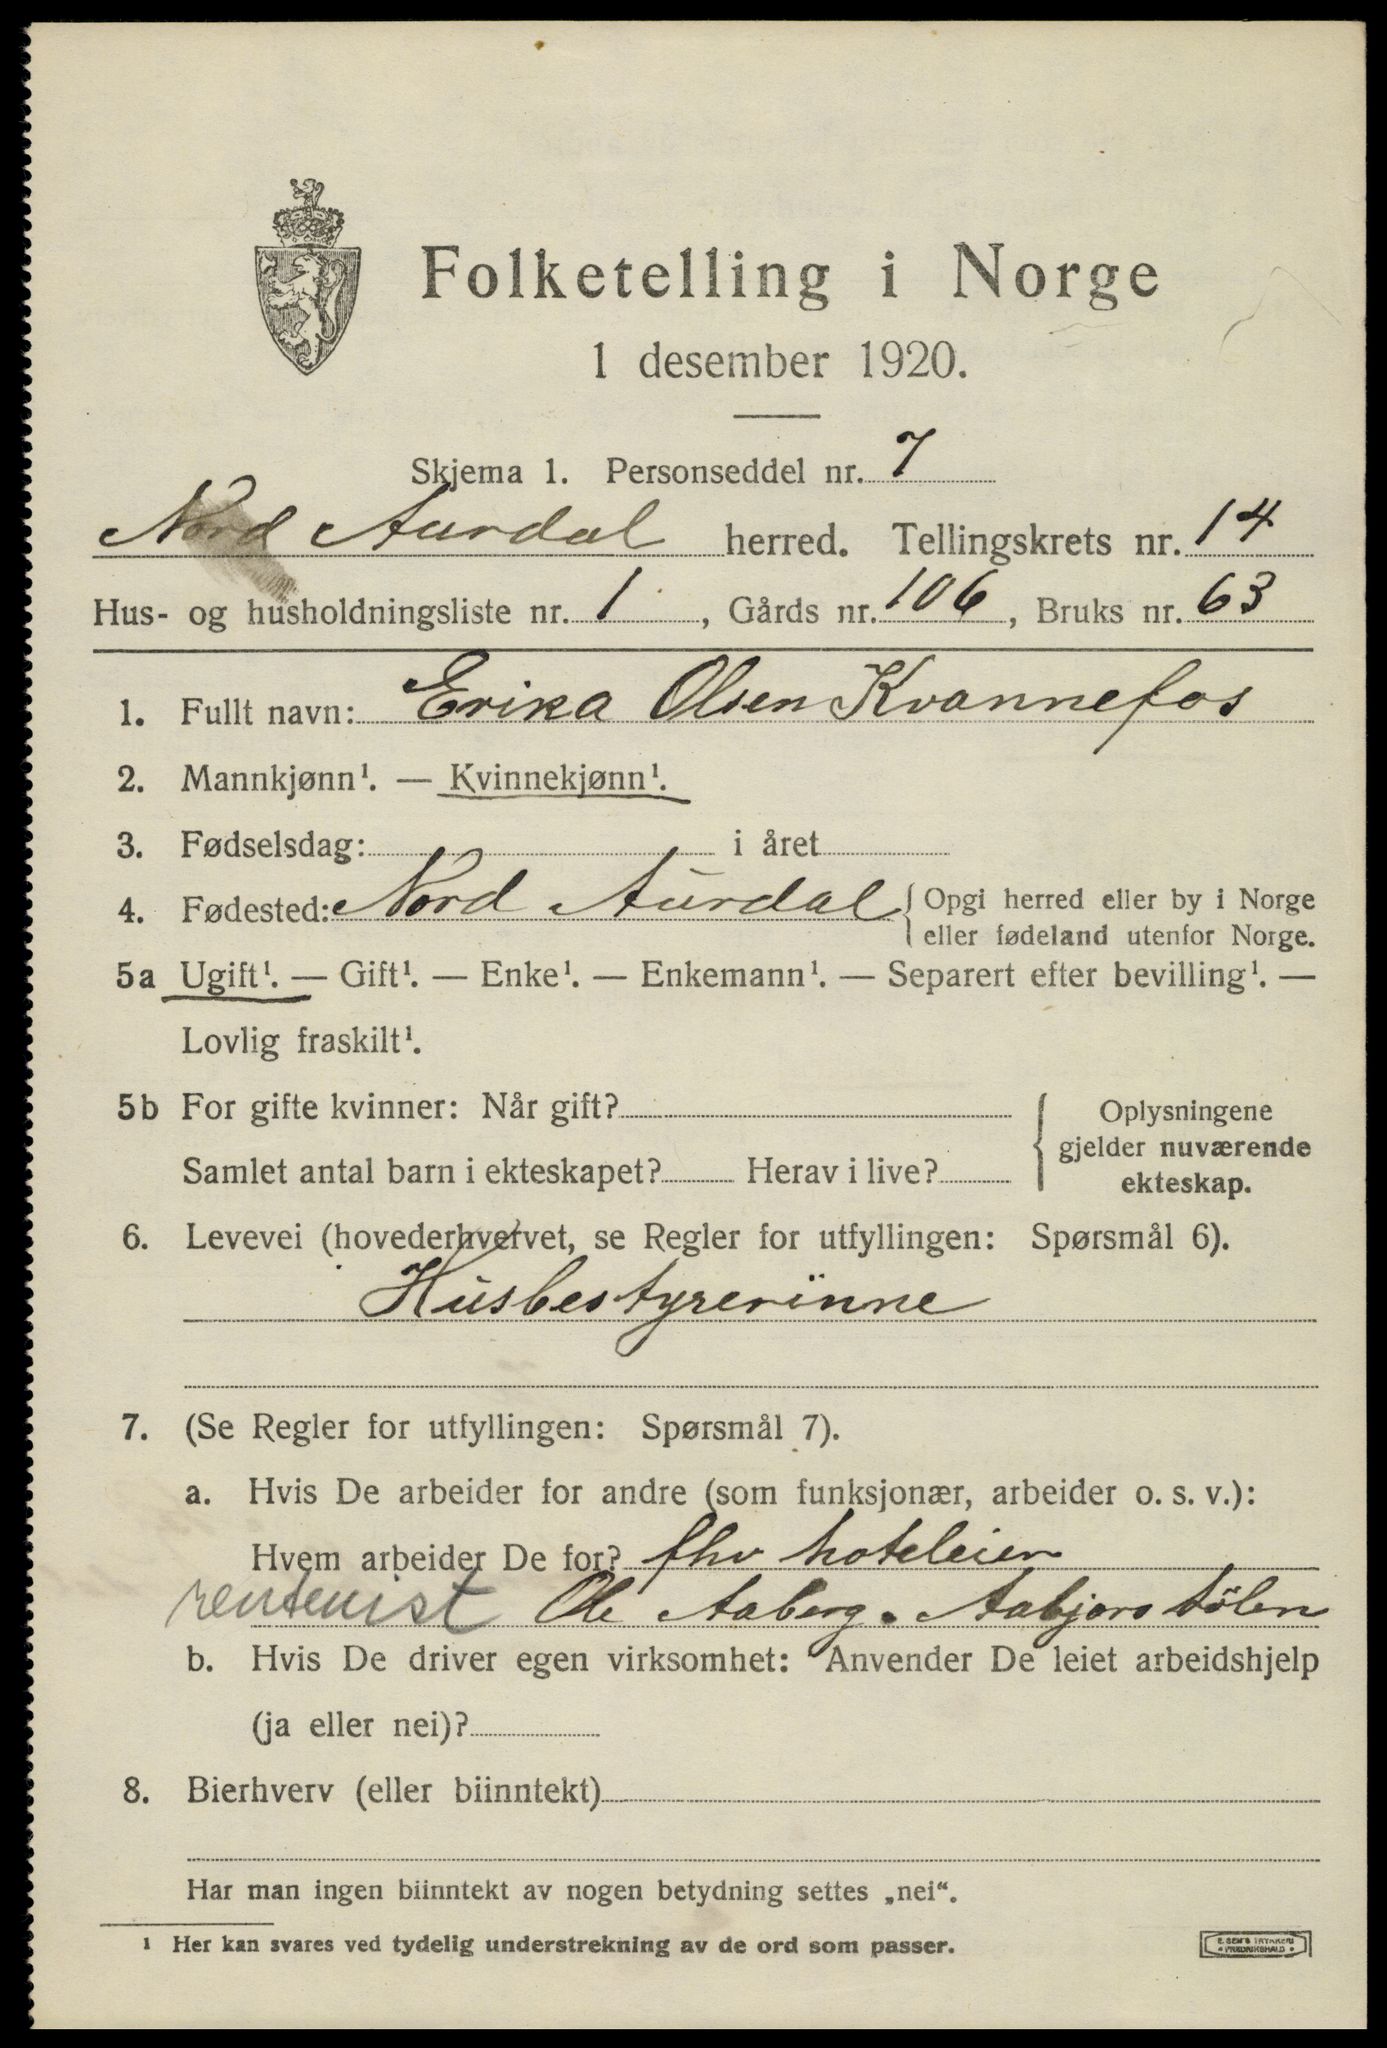 Folketelling i Norge
1 desember 1920.
Skjema 1. Personseddel nr. 7
Nord Aurdal herred. Tellingskrets nr. 14
Hus- og husholdningsliste nr. 1, Gårds nr. 106, Bruks nr. 63
1. Fullt navn: Erika Olsen Kvannefos
2. Mannkjønn¹. — Kvinnekjønn¹.
3. Fødselsdag: i året
4. Fødested: Nord Aurdal { Opgi herred eller by i Norge
eller fødeland utenfor Norge.
5a Ugift¹. — Gift¹. — Enke¹. — Enkemann¹. — Separert efter bevilling¹. —
Lovlig fraskilt¹.
5b For gifte kvinner: Når gift? { Oplysningene
gjelder nuværende
Samlet antal barn i ekteskapet? Herav i live? ekteskap.
6. Levevei (hovederhvervet, se Regler for utfyllingen: Spørsmål 6).
Husbestyrerinne
7. (Se Regler for utfyllingen: Spørsmål 7).
a. Hvis De arbeider for andre (som funksjonær, arbeider o. s. v.):
Hvem arbeider De for? fhv hoteleier
rentenist Ole Aaberg. Aabjørs tølen
b. Hvis De driver egen virksomhet: Anvender De leiet arbeidshjelp
(ja eller nei)?
8. Bierhverv (eller biinntekt)
Har man ingen biinntekt av nogen betydning settes „nei“.
¹ Her kan svares ved tydelig understrekning av de ord som passer.
E. SEM'S TRYKKERI
FREDRIKSHALD